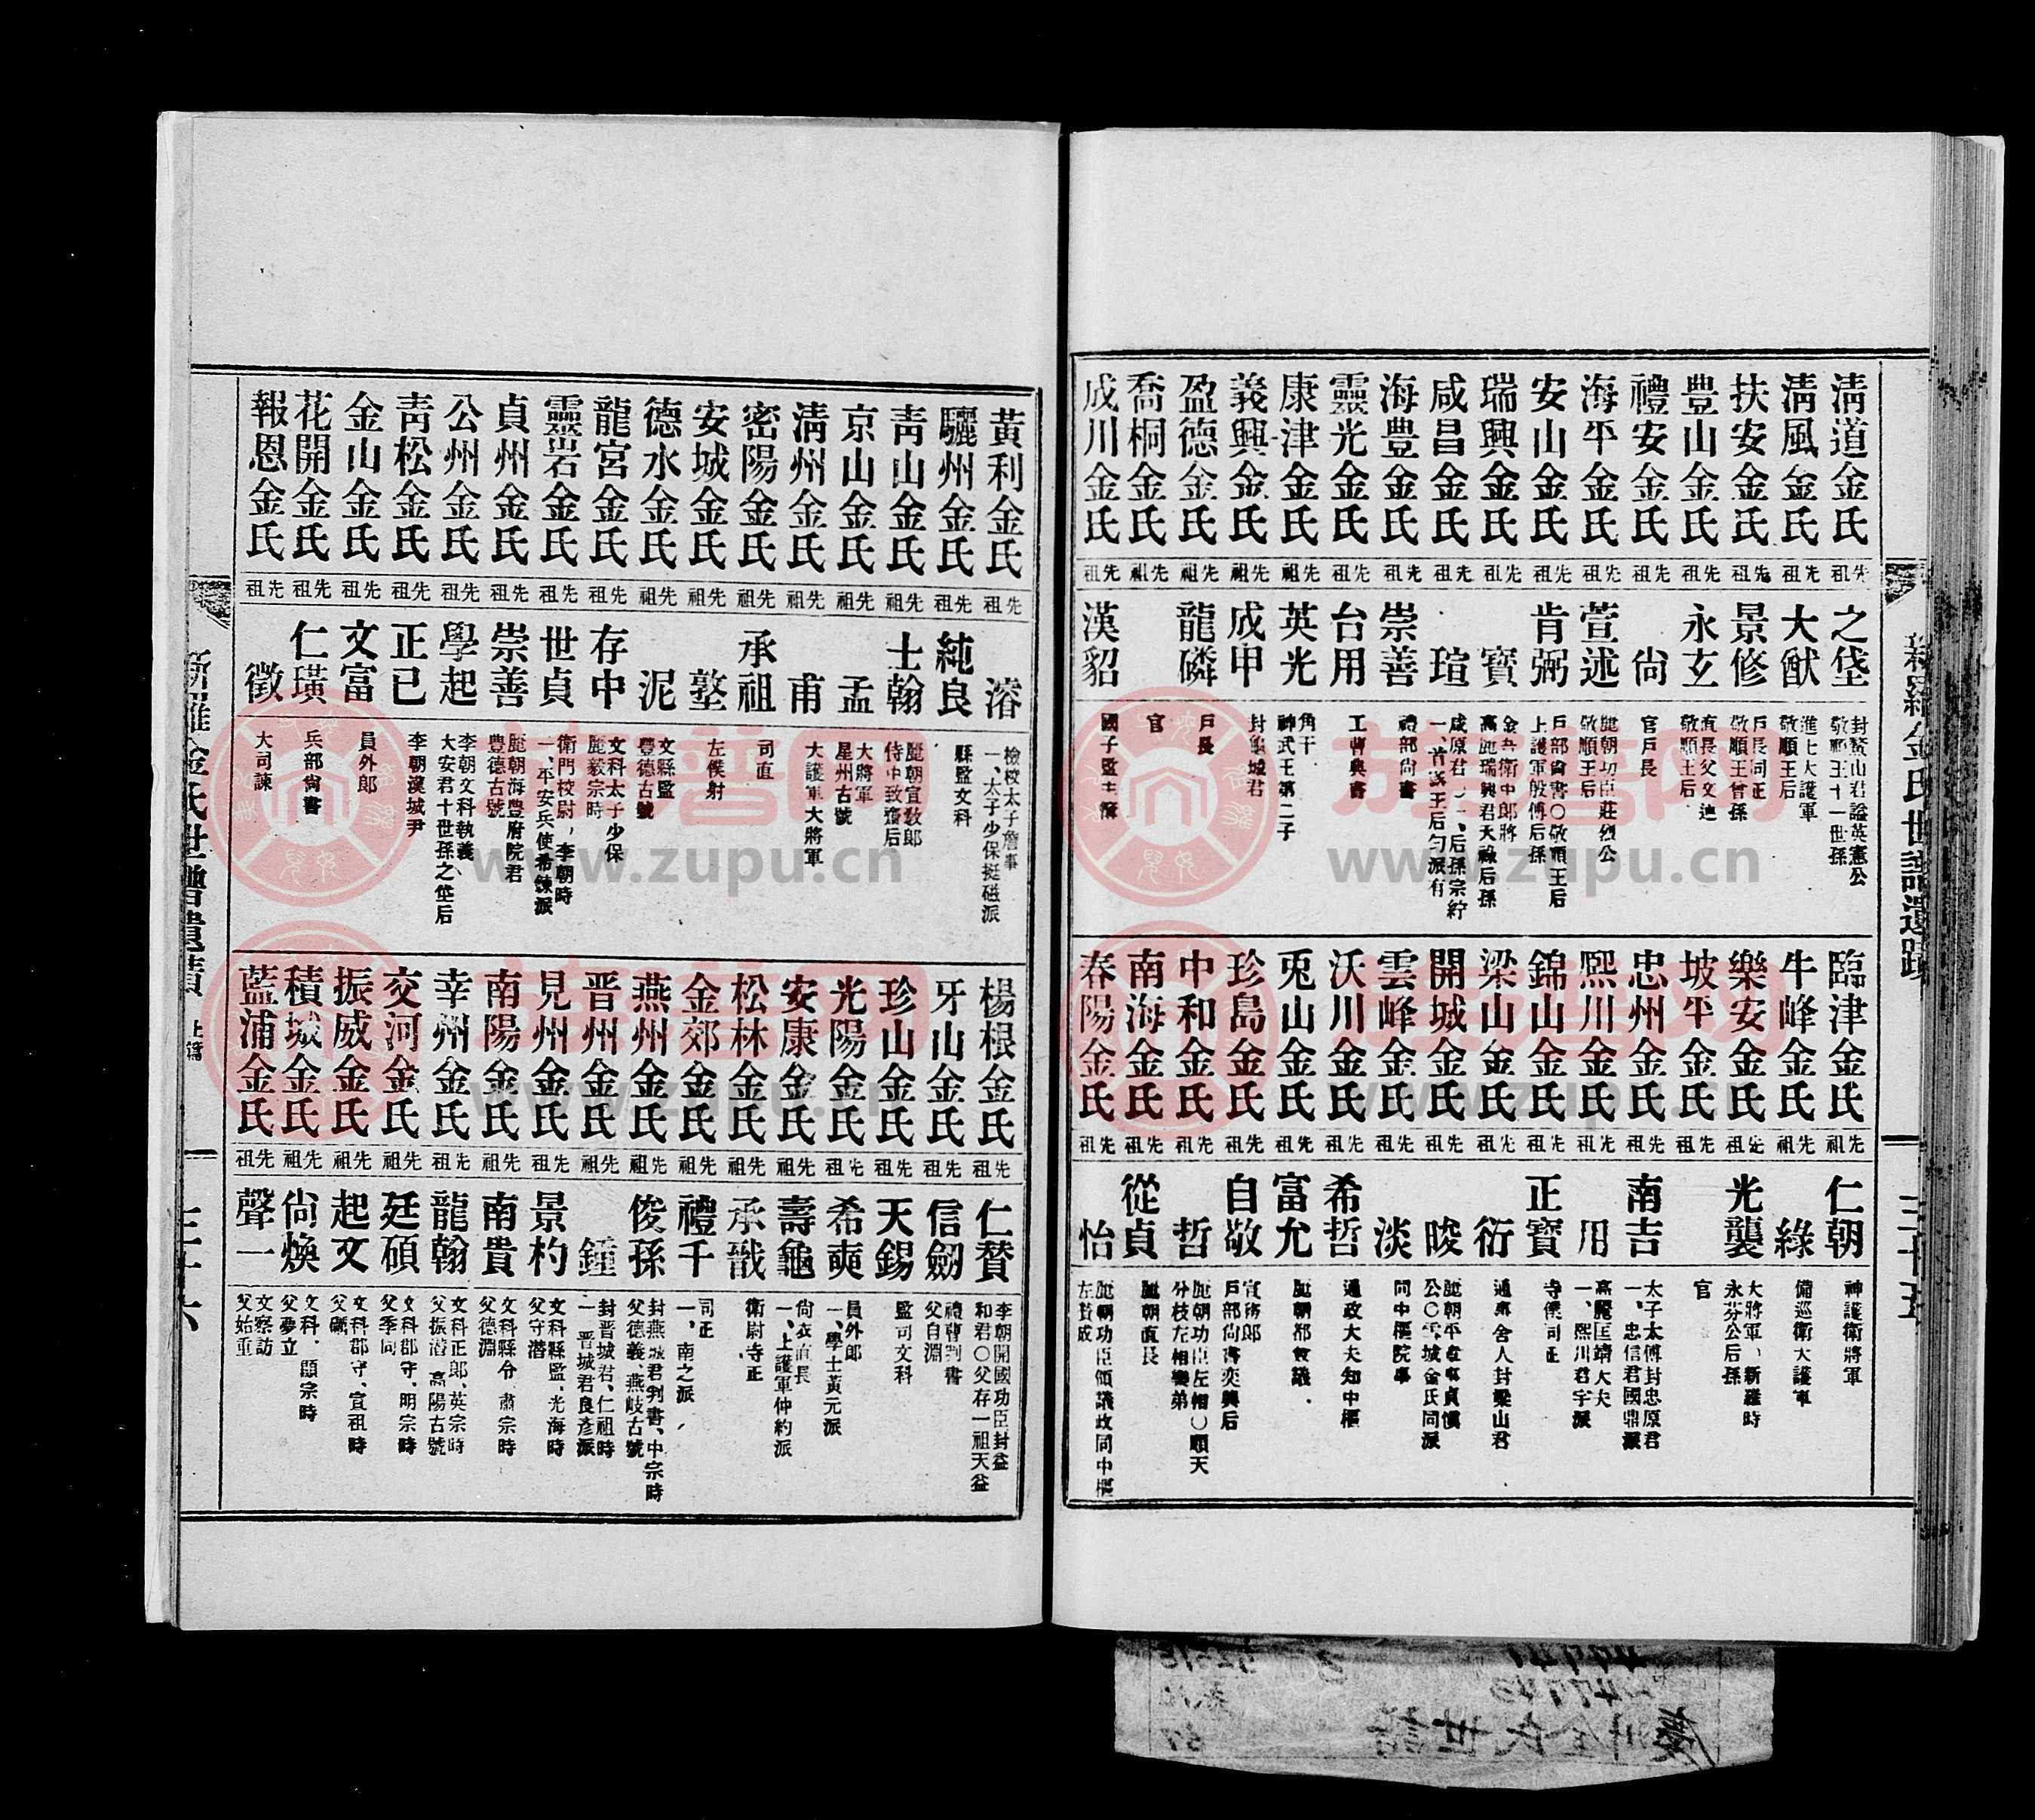 淸道金氏 先祖 之垈 封鰲山君謚英憲公 敬順王十一世孫
淸風金氏 先祖 大猷 進士大護軍 敬順王后
扶安金氏 先祖 景修 戶長同正 敬順王曾孫
豊山金氏 先祖 永玄 直長父文迪 敬順王后
禮安金氏 先祖 尙 官戶長
海平金氏 先祖 萱述 麗朝功臣莊烈公 敬順王后
安山金氏 先祖 肯弼 戶部尙書〇敬順王后 上護軍殷傅后孫
瑞興金氏 先祖 寶 金吾衛中郎將 高麗瑞興君天祿后孫
咸昌金氏 先祖 瑄
海豊金氏 先祖 崇善 禮部尙書
靈光金氏 先祖 台用 工曹典書
康津金氏 先祖 英光 角干 神武王第二子
義興金氏 先祖 成甲
盈德金氏 先祖 龍磷 戶長
喬桐金氏 先祖 官
成川金氏 先祖 漢貂 國子監主簿
臨津金氏 先祖 仁朝 神護衛將軍
牛峰金氏 先祖 綠 備巡衛大護軍
樂安金氏 先祖 光襲 大將軍、新羅時 永芬公后孫
坡平金氏 先祖 官
忠州金氏 先祖 南吉 太子太傅封忠原君 一、忠信君國鼎派
熙川金氏 先祖 用 高麗匡靖大夫 一、熙川君宇派
錦山金氏 先祖 正寶 寺僕同正
梁山金氏 先祖 衍 通事舍人封梁山君
開城金氏 先祖 晙
雲峰金氏 先祖 淡 同中樞院事
沃川金氏 先祖 希哲 通政大夫知中樞
兎山金氏 先祖 富允 麗朝都僉議
珍島金氏 先祖 自敬 戶部尙書奕興后
中和金氏 先祖 哲 麗朝功臣左相〇順天 分枝左相樂弟
南海金氏 先祖 從貞 麗朝直長
春陽金氏 先祖 怡 麗朝功臣僉議政同中樞 左贊成
新羅金氏世譜遺蹟
三十五
黃利金氏 先祖 溶 檢校太子詹事 一、太子少保挺磁派
驪州金氏 先祖 純良 縣監文科
靑山金氏 先祖 士翰 麗朝宣敎郎 侍中致陽后
京山金氏 先祖 孟 大將軍 星州古號
淸州金氏 先祖 甫 大護軍大將軍
密陽金氏 先祖 承祖 司直
安城金氏 先祖 墪 左僕射
德水金氏 先祖 泥 文縣監 豊德古號
龍宮金氏 先祖 存中 文科太子少保 麗毅宗時
靈岩金氏 先祖 世貞 衛門校尉、李朝時 一、平安兵使希鍊派
貞州金氏 先祖 崇善 麗朝海豊府院君 豊德古號
公州金氏 先祖 學起 李朝文科執義、 大安君十世孫之垈后
靑松金氏 先祖 正已 李朝漢城尹
金山金氏 先祖 文富 員外郎
花開金氏 先祖 仁璜 兵部尙書
報恩金氏 先祖 徵 大司諫
楊根金氏 先祖 仁贊 李朝開國功臣封益 和君〇父存一祖天益
牙山金氏 先祖 信劒 禮曹判書 父自淵
珍山金氏 先祖 天錫 監司文科
光陽金氏 先祖 希奭 員外郎 一、學士黃元派
安康金氏 先祖 壽龜 尙衣直長 一、上護軍仲約派
松林金氏 先祖 承戩 衛尉寺正
金郊金氏 先祖 禮千 司正 一、南之派
燕州金氏 先祖 俊孫 封燕城君判書、中宗時 父德義、燕岐古號
晋州金氏 先祖 鍾 封晋城君、仁祖時 一、晋城君良彥派
見州金氏 先祖 景杓 文科縣監、光海時 父守潛
南陽金氏 先祖 南貴 文科縣令、肅宗時 父德淵
幸州金氏 先祖 龍翰 文科正郎、英宗時 父振潛 高陽古號
交河金氏 先祖 廷碩 文科郡守、明宗時 父季同
振威金氏 先祖 起文 文科郡守、宣祖時 父礪
積城金氏 先祖 尙煥 文科、顯宗時 父夢立
藍浦金氏 先祖 聲一 文察訪 父始重
新羅金氏世譜遺蹟 上篇
三十六
慶州金氏世譜
族譜网
www.zupu.cn
族譜网
www.zupu.cn
族譜网
www.zupu.cn
族譜网
www.zupu.cn